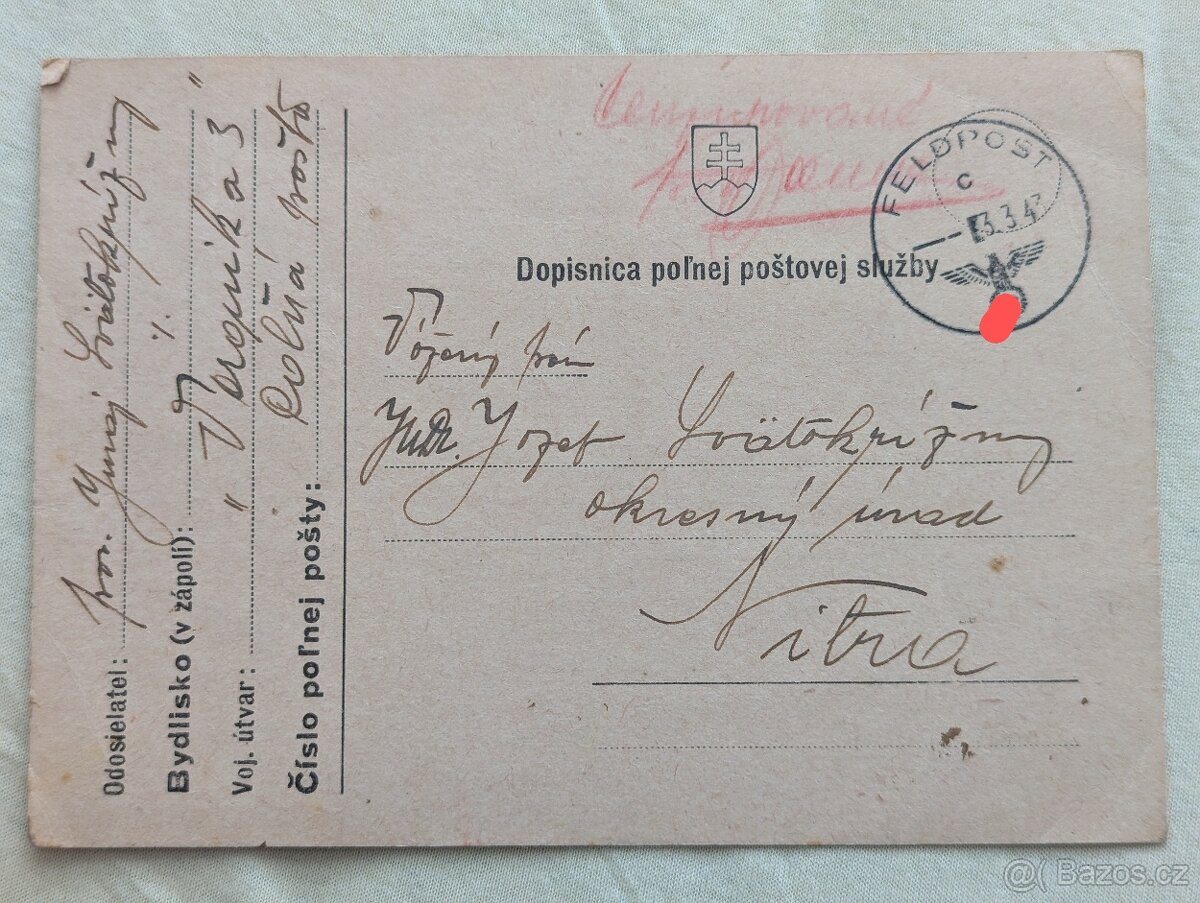 Cenzurované
FELDPOST
c
3.3.43
Dopisnica poľnej poštovej služby
Vážený pán
JuDr. Jozef Svätokrížny
okresný úrad
Nitra
Odosielateľ: por. Juraj Svätokrížny
Bydlisko (v zápolí): %
Voj. útvar: "Veronika 3"
Číslo poľnej pošty: Poľná pošta
@( Bazos.cz